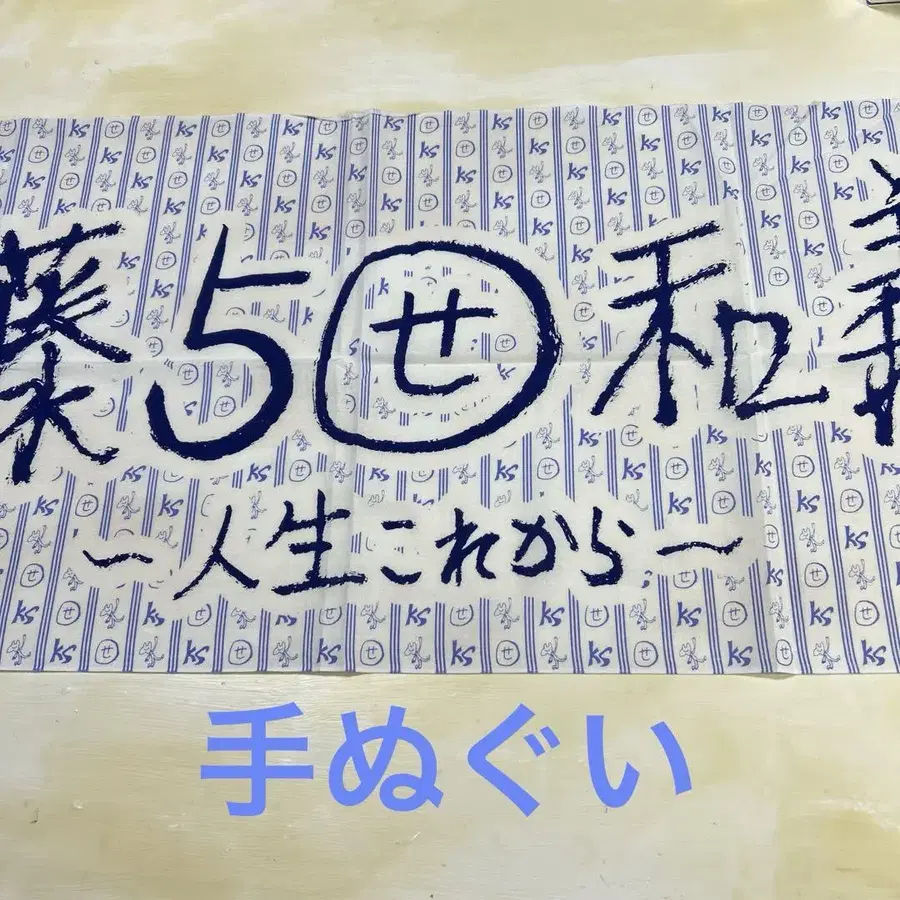 藤5せ和義
〜人生これから〜
手ぬぐい